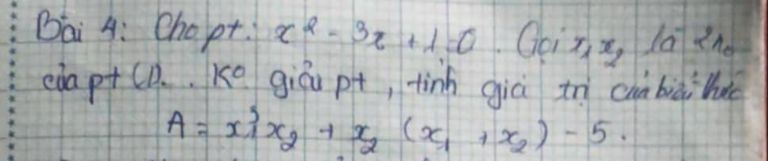 Bài 4: Cho pt: x² - 3x + 1 = 0. Gọi x₁ x₂ là 2 no
của pt (1). Ko giải pt, tính giá trị của biểu thức
A = x₁³x₂ + x₂ (x₁ + x₂) - 5.